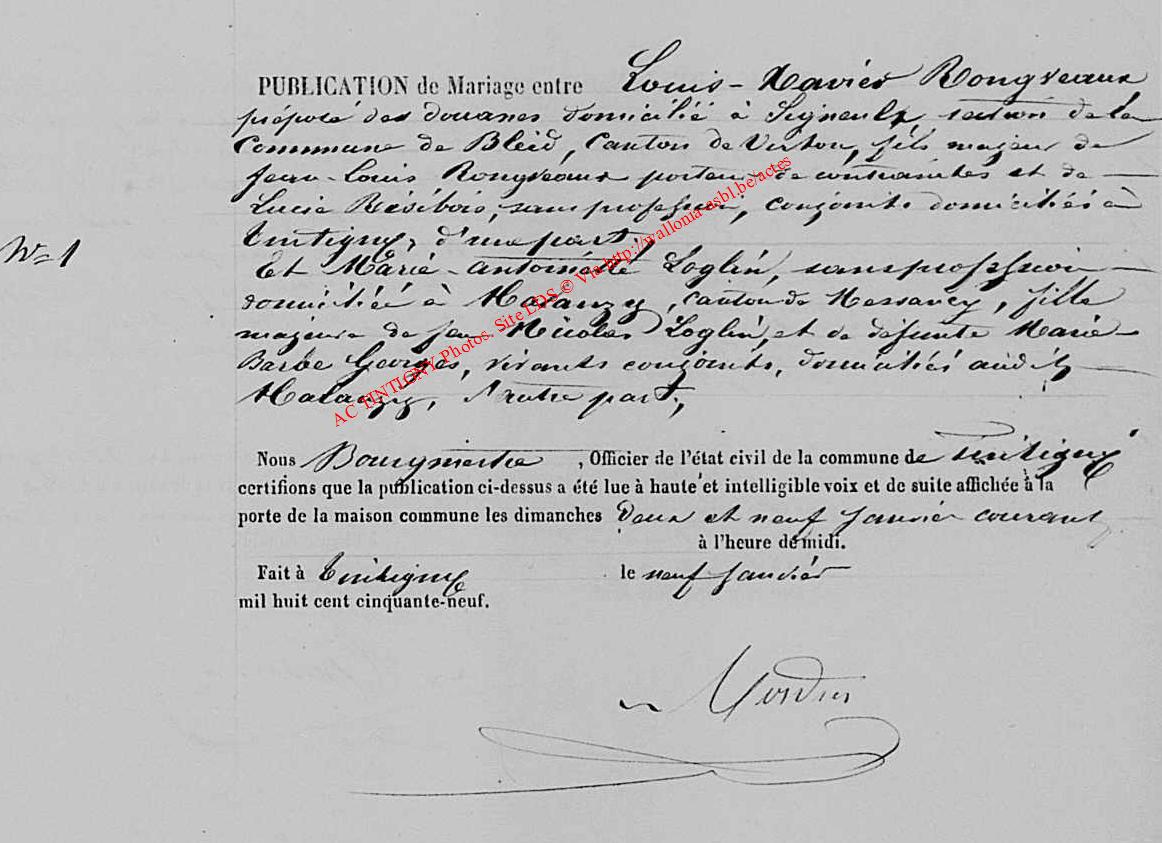 PUBLICATION de Mariage entre Louis-Xavier Rongveaux
préposé des douanes domicilié à Signeulx section de la
Commune de Bleid, Canton de Virton, fils majeur de
Jean-Louis Rongveaux porteur de contraintes et de
Lucie Résibois, sans profession, conjoints domiciliés à
Tintigny, d'une part,
N=1
Et Marie-Antoinette Loglin, sans profession
domiciliée à Halanzy, canton de Messancy, fille
majeure de feu Nicolas Loglin, et de défunte Marie-
Barbe Georges, vivants conjoints, domiciliés audit
Halanzy, d'autre part,
AC TINTIGNY Photos. Site LDS © Via http://wallonia-asbl.be/actes
Nous Bourgmestre, Officier de l'état civil de la commune de Tintigny
certifions que la publication ci-dessus a été lue à haute et intelligible voix et de suite affichée à la
porte de la maison commune les dimanches deux et neuf Janvier courant
à l'heure de midi.
Fait à Tintigny le neuf Janvier
mil huit cent cinquante-neuf.